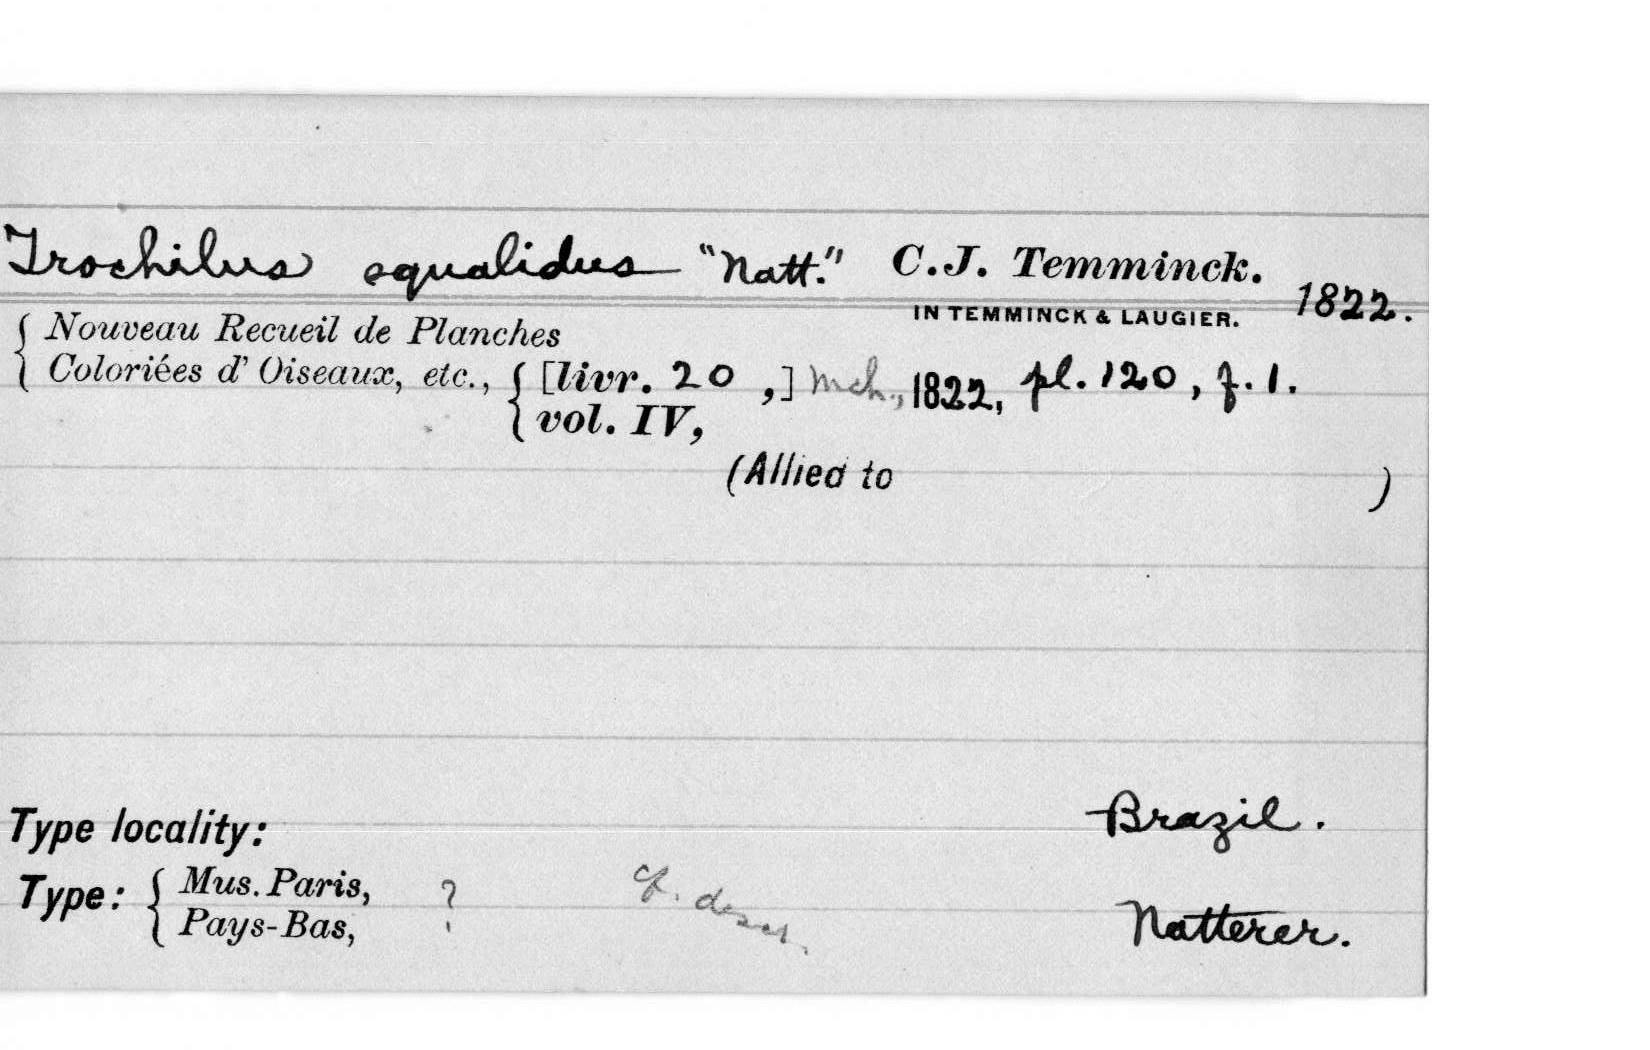 Trochilus squalidus "Natt." C.J. Temminck.
IN TEMMINCK & LAUGIER. 1822.
{ Nouveau Recueil de Planches
Coloriées d' Oiseaux, etc., { [livr. 20 ,] Mch., 1822, pl. 120, f. 1.
vol. IV,
(Allied to )
Type locality: Brazil.
Type: { Mus. Paris, ? cf. descr. Natterer.
Pays-Bas,